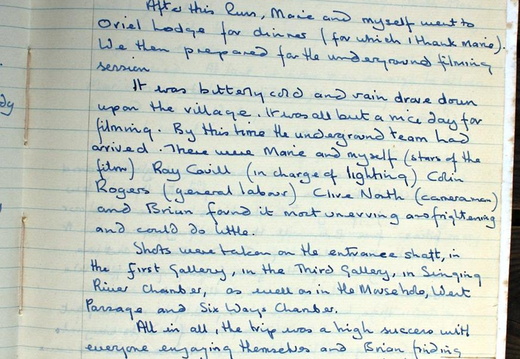 After this Run, Marie and myself went to
Oriel Lodge for dinner (for which I thank Marie).
We then prepared for the underground filming
session
It was butterly cold and rain drove down
upon the village. It was all but a nice day for
filming. By this time the underground team had
arrived. There were Marie and myself (stars of the
film) Ray Cavill (in charge of lighting) Colin
Rogers (general labour) Clive North (cameraman)
and Brian found it most unerving and frightening
and could do little.
Shots were taken on the entrance shaft, in
the first Gallery, in the Third Gallery, in Swinging
River Chamber, as well as in the Mousehole, West
Passage and Six Ways Chamber.
All in all, the trip was a high success with
everyone engaying themselves and Brian finding